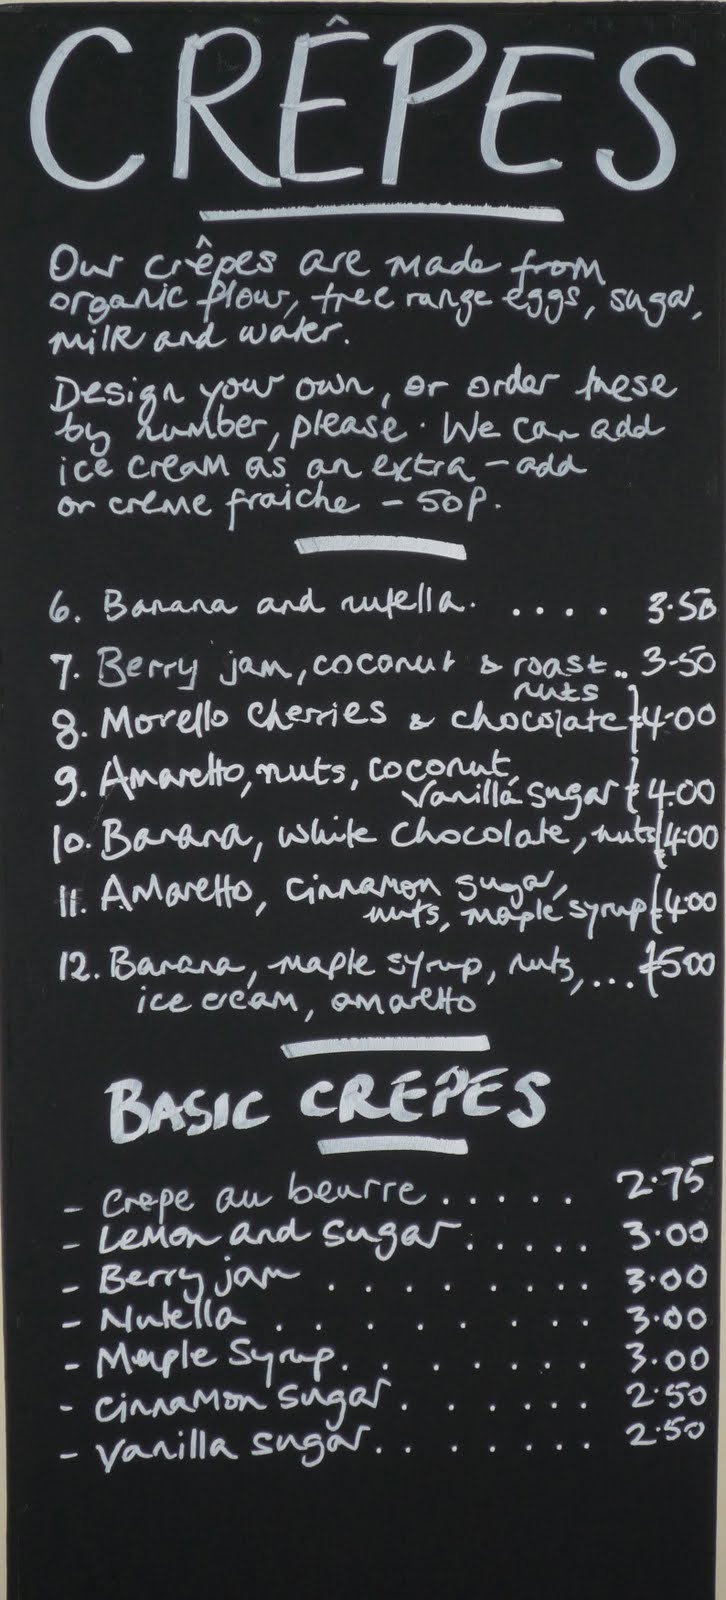 CRÊPES
Our crêpes are made from
organic flour, free range eggs, sugar,
milk and water.
Design your own, or order these
by number, please. We can add
ice cream as an extra - add
or crème fraiche - 50p.
6. Banana and nutella. .... 3.50
7. Berry jam, coconut & roast .. 3-50
nuts
8. Morello cherries & chocolate £4.00
9. Amaretto, nuts, coconut,
vanilla sugar £4.00
10. Banana, white chocolate, nuts £4.00
11. Amaretto, cinnamon sugar,
nuts, maple syrup £4.00
12. Banana, maple syrup, nuts, ... £500
ice cream, amaretto
BASIC CREPES
- Crepe au beurre ...... 2.75
- Lemon and sugar ...... 3.00
- Berry jam ........ 3.00
- Nutella ......... 3.00
- Maple Syrup. ....... 3.00
- Cinnamon sugar. ...... 2.50
- Vanilla sugar. ....... 2.50